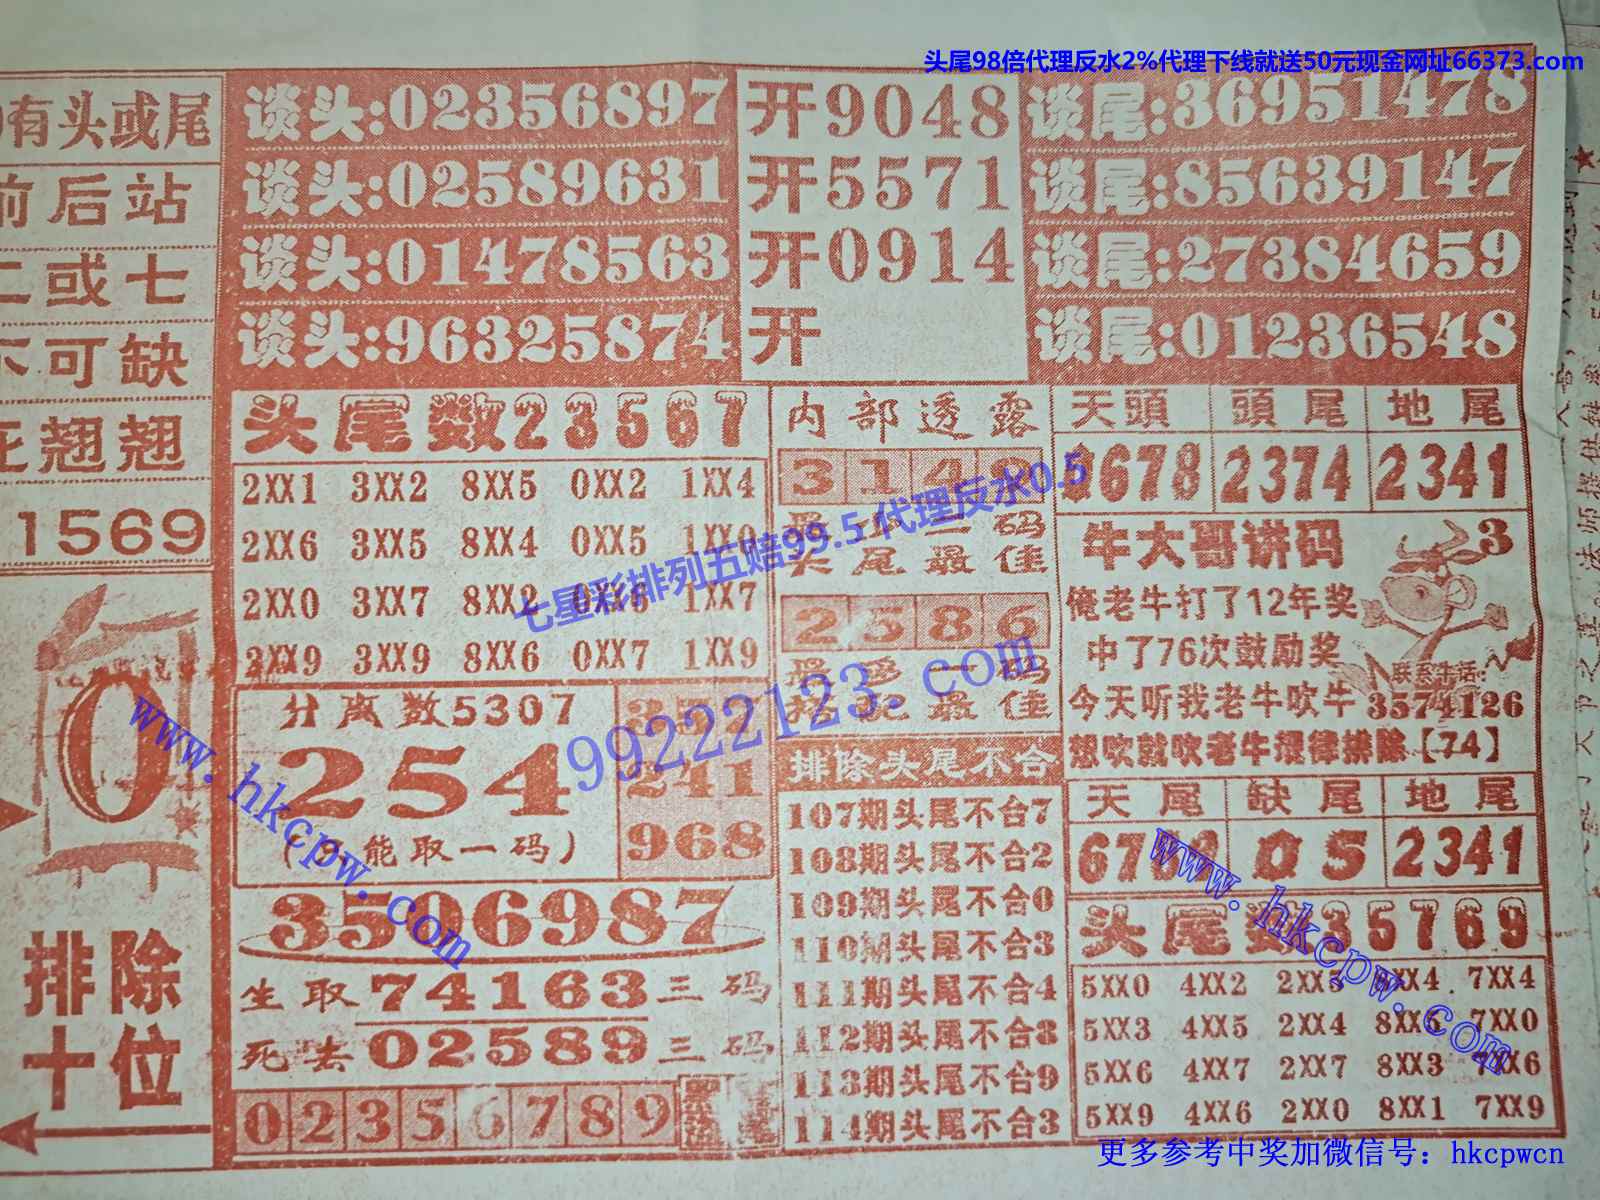 头尾98倍代理反水2%代理下线就送50元现金网址66373.com
有头或尾
前后站
二或七
不可缺
翘翘
1569
0
排除
十位
谈头:02356897 开9048 谈尾:36951478
谈头:02589631 开5571 谈尾:85639147
谈头:01478563 开0914 谈尾:27384659
谈头:96325874 开 谈尾:01236548
头尾数23567
2XX1 3XX2 8XX5 0XX2 1XX4
2XX6 3XX5 8XX4 0XX5 1XX0
2XX0 3XX7 8XX2 0XX6 1XX7
2XX9 3XX9 8XX6 0XX7 1XX9
分离数5307
254
能取一码)
241
968
3506987
生取74163三码
死去02589三码
0 2 3 5 6 7 8 9
内部透露
码
头尾最佳
2 5 8 6
码
最佳
排除头尾不合
107期头尾不合7
108期头尾不合2
109期头尾不合0
110期头尾不合3
111期头尾不合4
112期头尾不合3
113期头尾不合9
114期头尾不合3
天頭 頭尾 地尾
678 2374 2341
牛大哥讲码 3
俺老牛打了12年奖
中了76次鼓励奖
联系电话:
今天听我老牛吹牛 3574126
想吹就吹老牛规律排除【74】
天尾 缺尾 地尾
05 2341
头尾数35769
5XX0 4XX2 2XX5 8XX4 7XX4
5XX3 4XX5 2XX4 8XX6 7XX0
5XX6 4XX7 2XX7 8XX3 7XX6
5XX9 4XX6 2XX0 8XX1 7XX9
七星彩排列五赔99.5代理反水0.5
99222123.com
www.hkcpw.com
www.hkcpw.com
更多参考中奖加微信号：hkcpwcn